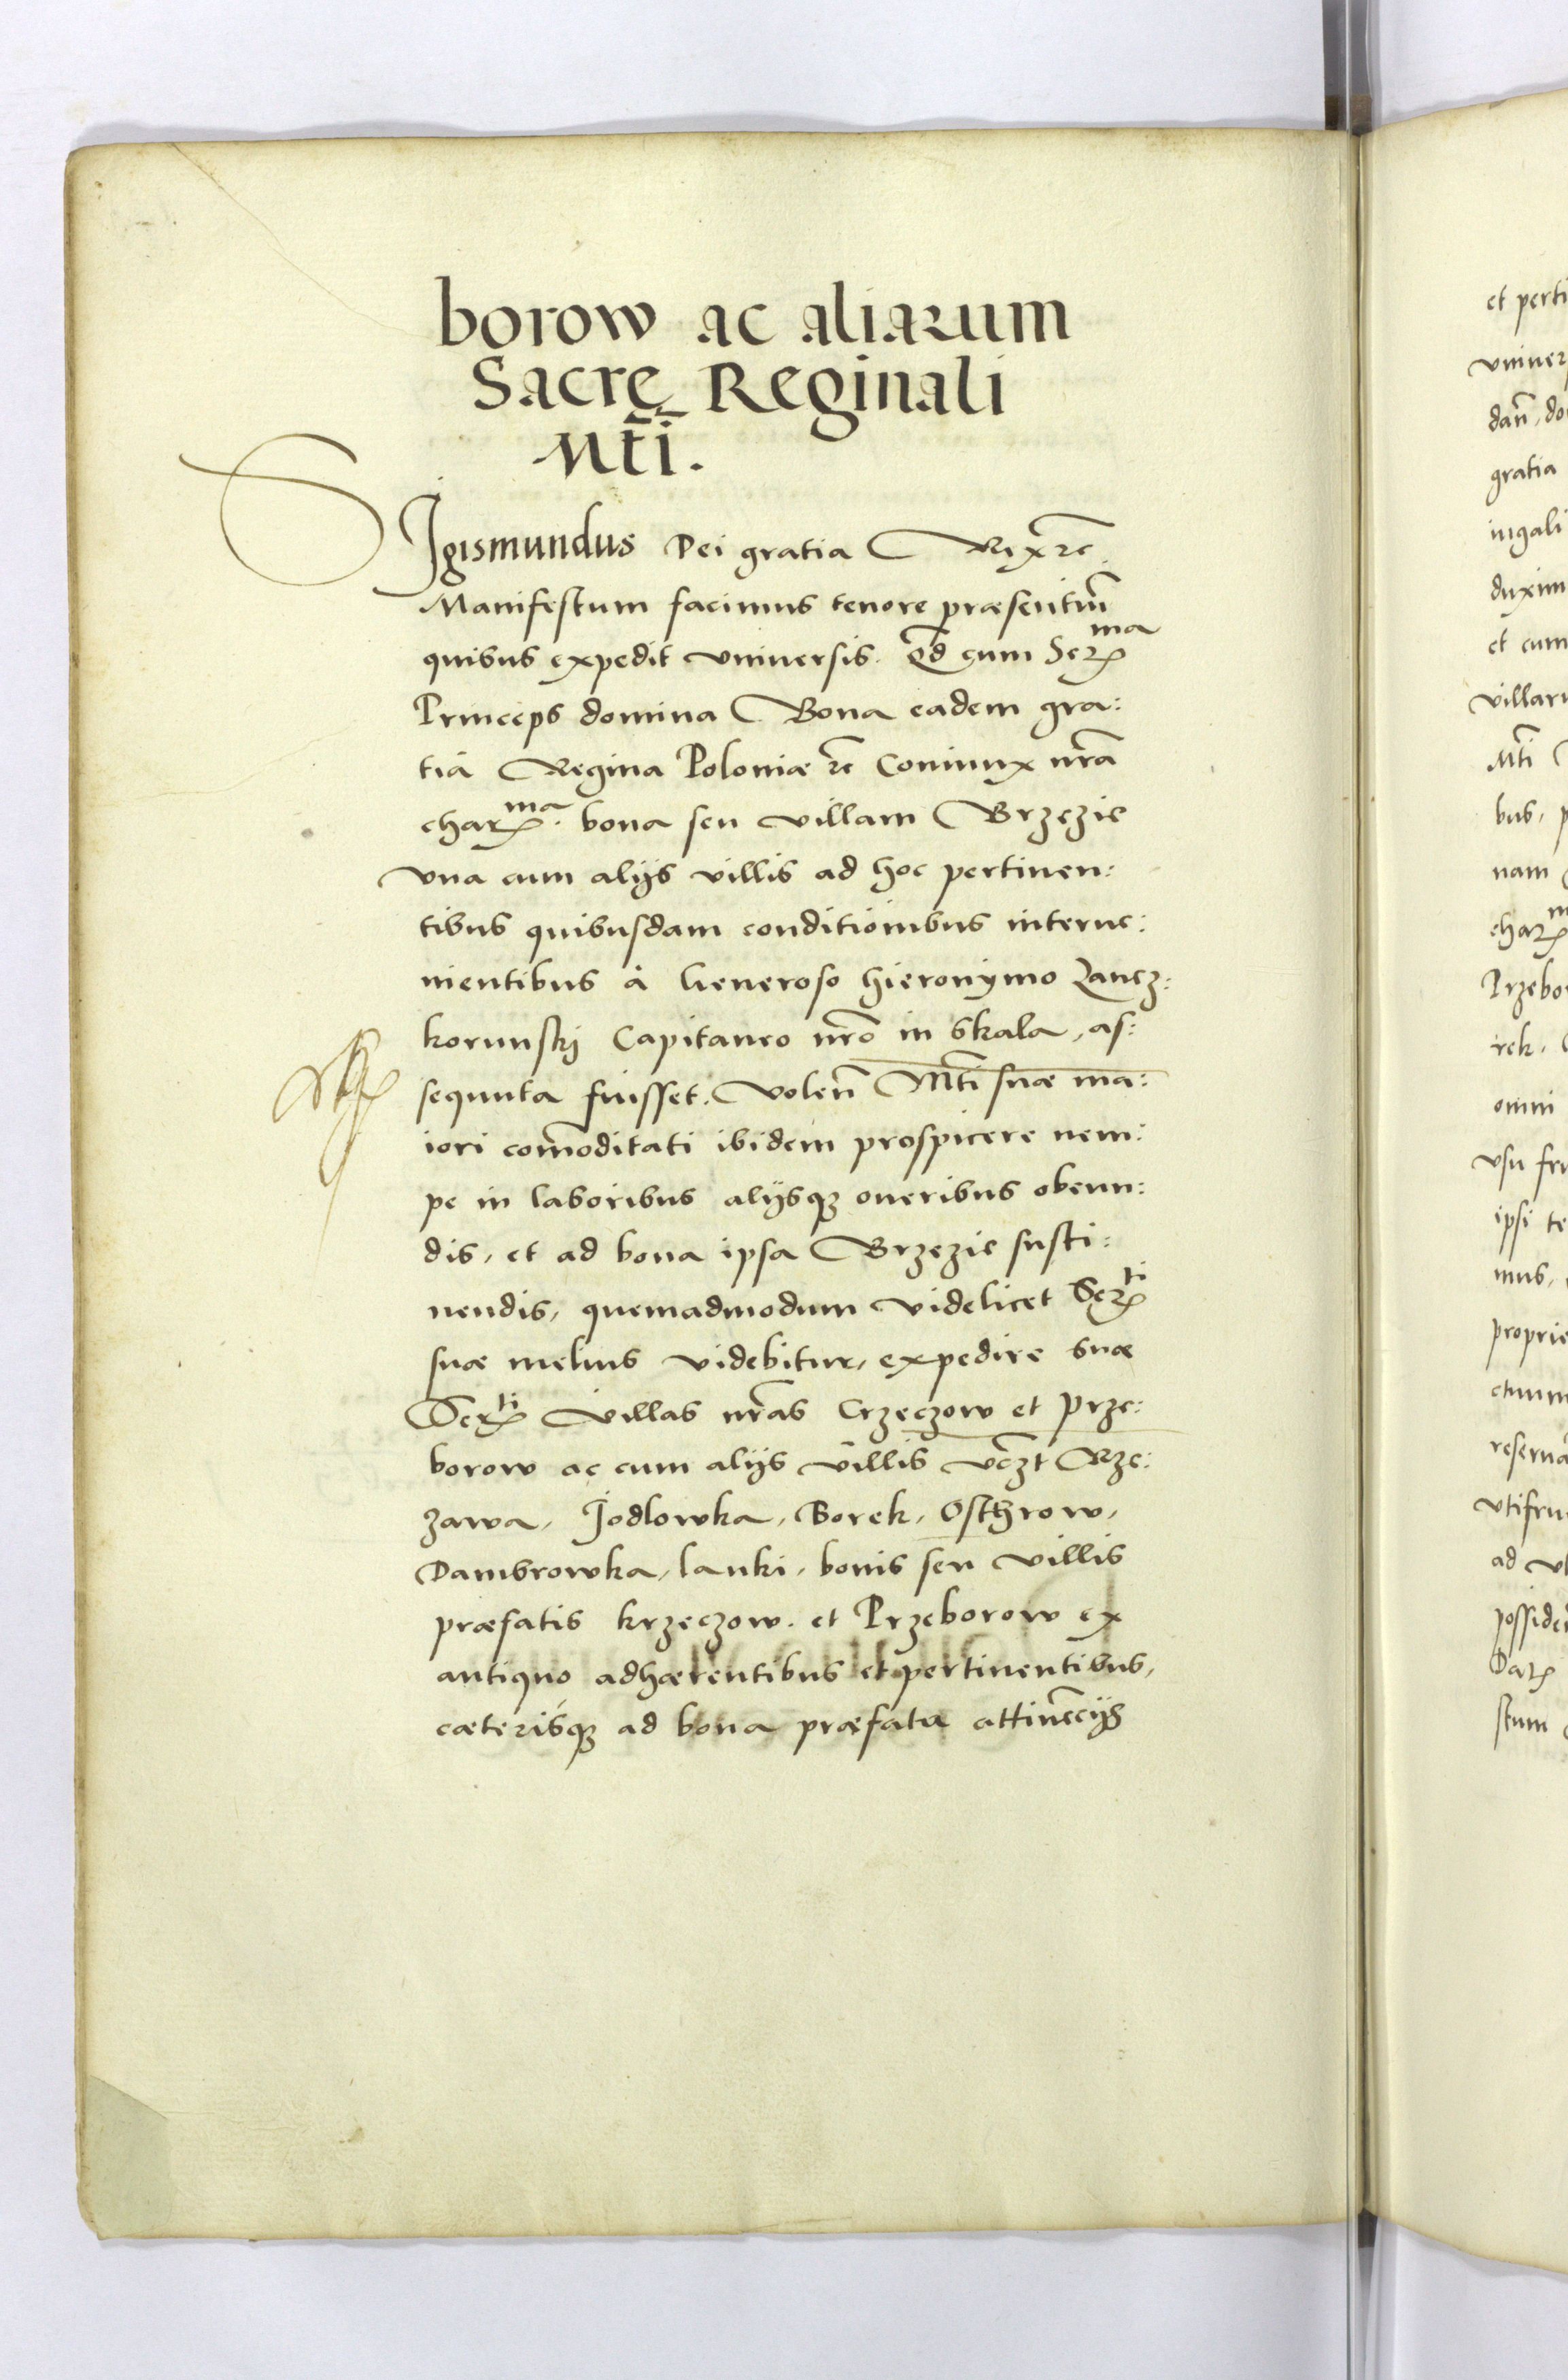 borow ac aliarum
Sacrę Reginali
Mt̄i.
SIgismundus Dei gratia Rex rc̄
Manifestum facimus tenore præsentiūm
quibus expedit vniuersis. Qd̄ cum Serma
Princeps domina Bona eadem gra:
tia Regina Poloniæ rc̄ Coniunx nr̄a
charma. bona seu villam Brzezie
vna cum alijs villis ad hoc pertinen:
tibus quibusdam conditionibus interue:
nientibus à Generoso Hieronymo Lancz:
korunskj Capitaneo nrō in Skala, as:
sequuta fuisset. Volen̄ Mt̄i suæ ma:
iori com̄oditati ibidem prospicere nem:
pe in laboribus alijsq3 oneribus obeun:
dis, et ad bona ipsa Brzezie susti:
nendis, quemadmodum videlicet Serti
suæ melius videbitur, expedire suæ
Serti Villas nr̄as Crzeczow et Prze:
borow ac cum alijs villis vc̄zt Rze:
zawa, Jodlowka, Borek, Osthrow,
Dambrowka, lanki, bonis seu villis
præfatis krzeczow. et Przeborow ex
antiquo adhærentibus et pertinentibus,
cæterisq3 ad bona præfata attinēcijs
et perti
vniuer
dan̄, do
gratia
iugali
duxim
et cum
villaru
Mt̄i
bus, p
nam
charm
Przebo
rek,
omni
vsu fru
ipsi te
mus,
proprie
ctuum
reserua
vtifru
ad vt
possided
Dat
stum